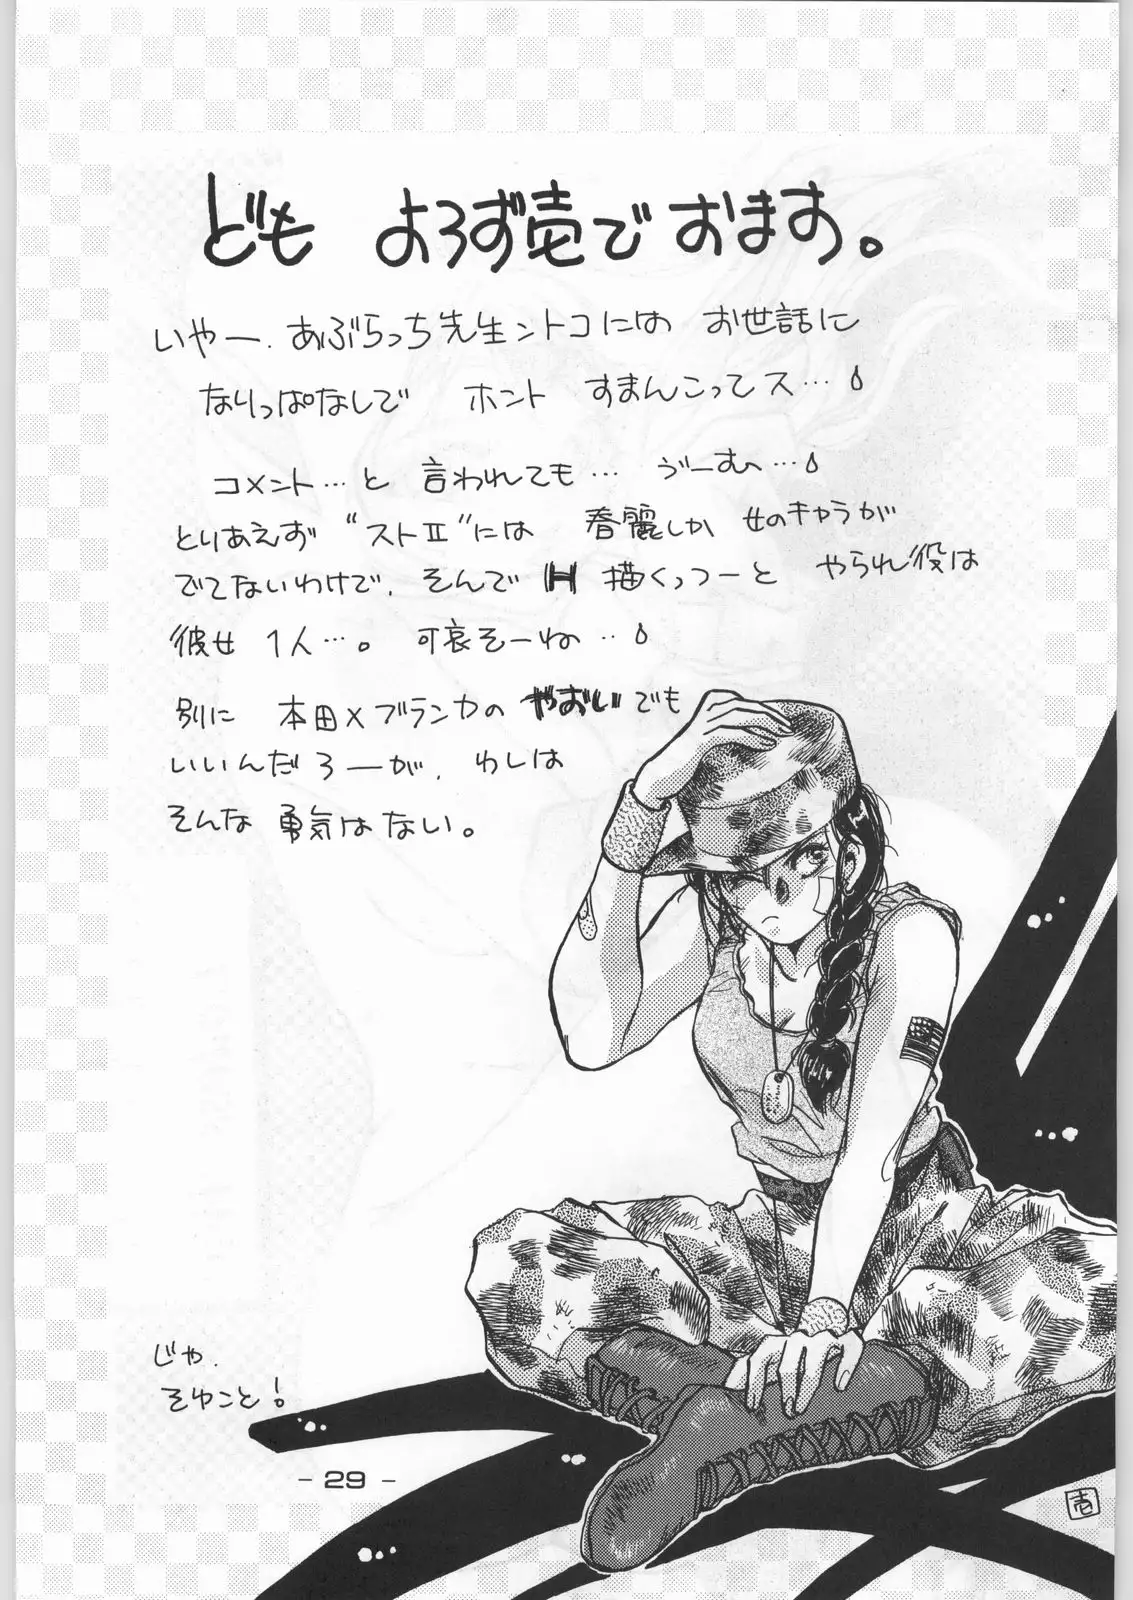 ども よろず壱でおます。
いやー、あぶらっち先生ントコには お世話に
なりっぱなしで ホント すまんこってス…
コメント…と 言われても… ゔーむ…
とりあえず “ストⅡ”には 春麗しか 女のキャラが
でてないわけで、そんで H 描くっつーと やられ役は
彼女 1人…。 可哀そーね…
別に 本田×ブランカの やおい でも
いいんだろーが、わしは
そんな 勇気はない。
じゃ、
そゆこと!
- 29 -
壱